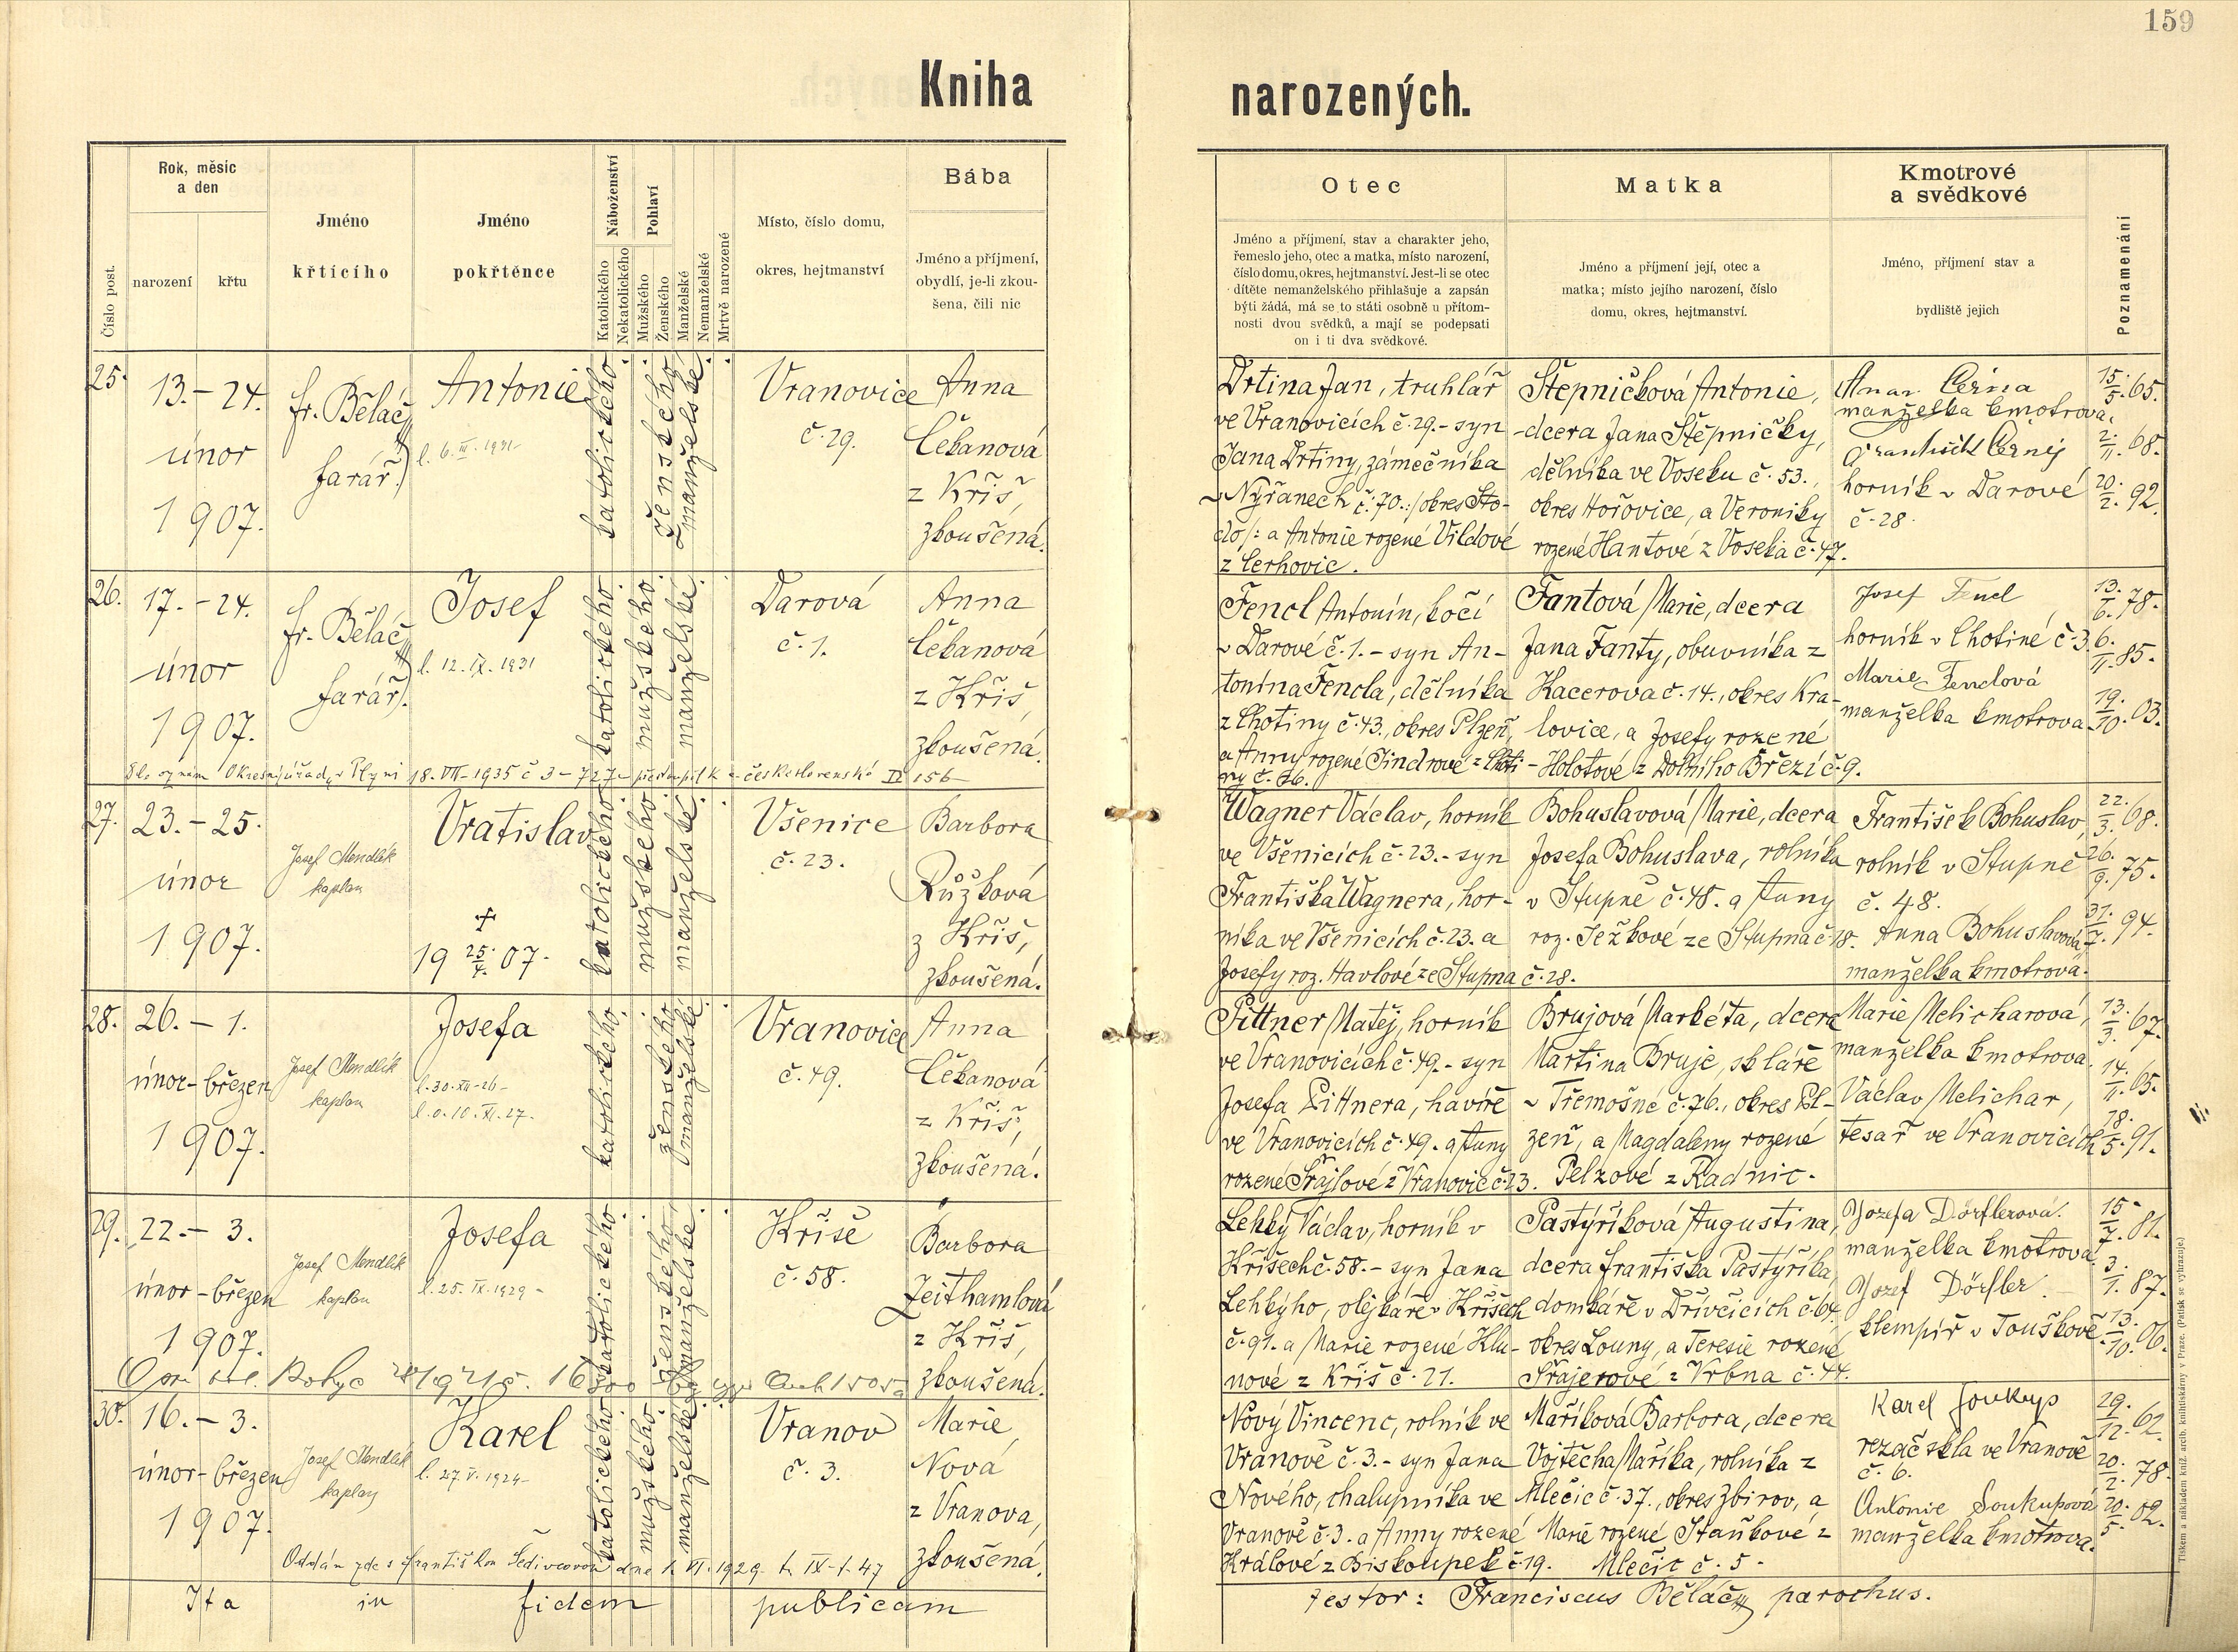 159
Kniha narozených.
Číslo post.
Rok, měsíc a den
narození
křtu
Jméno křtícího
Jméno pokřtěnce
Náboženství
Katolického
Nekatolického
Pohlaví
Mužského
Ženského
Manželské
Nemanželské
Mrtvě narozené
Místo, číslo domu,
okres, hejtmanství
Bába
Jméno a příjmení,
obydlí, je-li zkou-
šena, čili nic
Otec
Jméno a příjmení, stav a charakter jeho,
řemeslo jeho, otec a matka, místo narození,
číslo domu, okres, hejtmanství. Jest-li se otec
dítěte nemanželského přihlašuje a zapsán
býti žádá, má se to státi osobně u přítom-
nosti dvou svědků, a mají se podepsati
on i ti dva svědkové.
Matka
Jméno a příjmení její, otec a
matka; místo jejího narození, číslo
domu, okres, hejtmanství.
Kmotrové
a svědkové
Jméno, příjmení stav a
bydliště jejich
Poznamenání
25.
13. - 24.
únor
1907.
fr. Běláč
farář.
Antonie
l. 6. III. 1931
katolického
ženského
manželské
Vranovice
č. 29.
Anna
Čekanová
z Kříš,
zkoušená.
Drtina Jan, truhlář
ve Vranovicích č. 29. - syn
Jana Drtiny, zámečníka
v Nýřanech č. 70. /: okres Sto-
do :/ a Antonie rozené Vildové
z Cerhovic.
Štěpničková Antonie,
- dcera Jana Štěpničky,
dělníka ve Voseku č. 53.,
okres Hořovice, a Veroniky
rozené Hantové z Voseka č. 47.
manželka kmotrova.
František Černý
horník v Darové
č. 28.
15./5. 65.
2./11. 68.
20./2. 92.
26.
17. - 24.
únor
1907.
fr. Běláč
farář.
Josef
l. 12. IX. 1931
katolického
mužského
manželské
Darová
č. 1.
Anna
Čekanová
z Kříš,
zkoušená.
Fencl Antonín, kočí
v Darové č. 1. - syn An-
tonína Fencla, dělníka
z Chotiny č. 43., okres Plzeň
a Anny rozené Jindrové z Choti-
ny č. 36.
Fantová Marie, dcera
Jana Fanty, obuvníka z
Kacerova č. 14., okres Kra-
lovice, a Josefy rozené
Holotové z Dolního Březí č. 9.
Josef Fencl
horník v Chotině č. 3
Marie Fenclová
manželka kmotrova
13./6. 78.
6./11. 85.
19./10. 03.
27.
23. - 25.
únor
1907.
Josef Mendlík
kaplan
Vratislav
†
19 25./4. 07.
katolického
mužského
manželské
Všenice
č. 23.
Barbora
Růžková
z Kříš,
zkoušená.
Wagner Václav, horník
ve Všenicích č. 23. - syn
Františka Wagnera, hor-
níka ve Všenicích č. 23. a
Josefy roz. Havlové ze Stupna č. 28.
Bohuslavová Marie, dcera
Josefa Bohuslava, rolníka
v Stupně č. 48. a Anny
roz. Ježkové ze Stupna č. 18.
František Bohuslav,
rolník v Stupně
č. 48.
Anna Bohuslavová
manželka kmotrova.
22./3. 68.
26./9. 75.
31./7. 94.
28.
26. - 1.
únor - březen
1907.
Josef Mendlík
kaplan
Josefa
l. 30. XII - 26 -
l. o. 10. XI. 27.
katolického
ženského
manželské
Vranovice
č. 49.
Anna
Čekanová
z Kříš,
zkoušená.
Pittner Matěj, horník
ve Vranovicích č. 49. - syn
Josefa Pittnera, havíře
ve Vranovicích č. 49. a Anny
rozené Šrajlové z Vranovic č. 23.
Brujová Markéta, dcera
Martina Bruje, skláře
v Třemošné č. 76., okres Pl-
zeň, a Magdaleny rozené
Pelzové z Radnic.
Marie Melicharová,
manželka kmotrova.
Václav Melichar,
tesař ve Vranovicích
13./3. 67.
14./11. 65.
18./5. 91.
29.
22. - 3.
únor - březen
1907.
Josef Mendlík
kaplan
Josefa
l. 25. IX. 1929 -
katolického
ženského
manželské
Kříše
č. 58.
Barbora
Zeithamlová
z Kříš,
zkoušená.
Lehký Václav, horník v
Kříšech č. 58. - syn Jana
Lehkýho, olejkáře v Kříšech
č. 91. a Marie rozené Klu-
nové z Kříš č. 21.
Pastýříková Augustina,
dcera Františka Pastýříka,
domkáře v Dřívčicích č. 64.
okres Louny, a Teresie rozené
Šrajerové z Vrbna č. 44.
Josefa Dörflerová.
manželka kmotrova
Josef Dörfler.
klempíř v Touškově
15./7. 81.
3./1. 87.
13./10. 06.
30.
16. - 3.
únor - březen
1907.
Josef Mendlík
kaplan
Karel
l. 27. V. 1924 -
katolického
mužského
manželské
Vranov
č. 3.
Marie
Nová
z Vranova,
zkoušená.
Nový Vincenc, rolník ve
Vranově č. 3. - syn Jana
Nového, chalupníka ve
Vranově č. 3. a Anny rozené
Králové z Biskoupek č. 19.
Maříková Barbora, dcera
Vojtěcha Maříka, rolníka z
Mlečic č. 37., okres Zbirov, a
Marie rozené Staňkové z
Mlečic č. 5.
Karel Soukup
rezač skla ve Vranově
č. 6.
Antonie Soukupová
manželka kmotrova.
29./12. 62.
20./2. 78.
20./5. 02.
Oddán zde s Františkou Šedivcovou dne 1. VI. 1929.
Ita in fidem publicam
testor: Franciscus Běláč parochus.
Tiskem a nákladem kníž. arcib. knihtiskárny v Praze. (Patisk se vyhrazuje.)